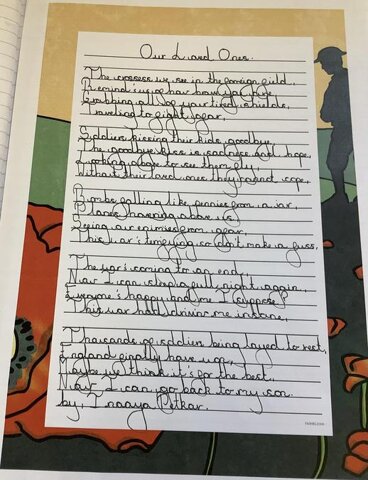 Our Loved Ones.
The crosses we see in the foreign field,
Remind's us of how brave you were
Grabbing all of your tired shields,
Traveling to fight afar,
Soldiers kissing their kids goodbye
The goodbye kiss is sadness and hope,
Looking above to see them
Without their loved ones they cannot cope,
Bombs falling like pennies from a jar,
Planes hovering above us,
Seeing our enimies from afar,
This war's terrifying so don't make a fuss,
The war's coming to an end,
Now I can sleep a full night again,
Everyone's happy and me I suppose
This war had driven me insane,
Thousands of soldiers being layed to rest,
England finally have won,
Maybe we think it's for the best,
Now I can go back to my son.
by: Inaaya